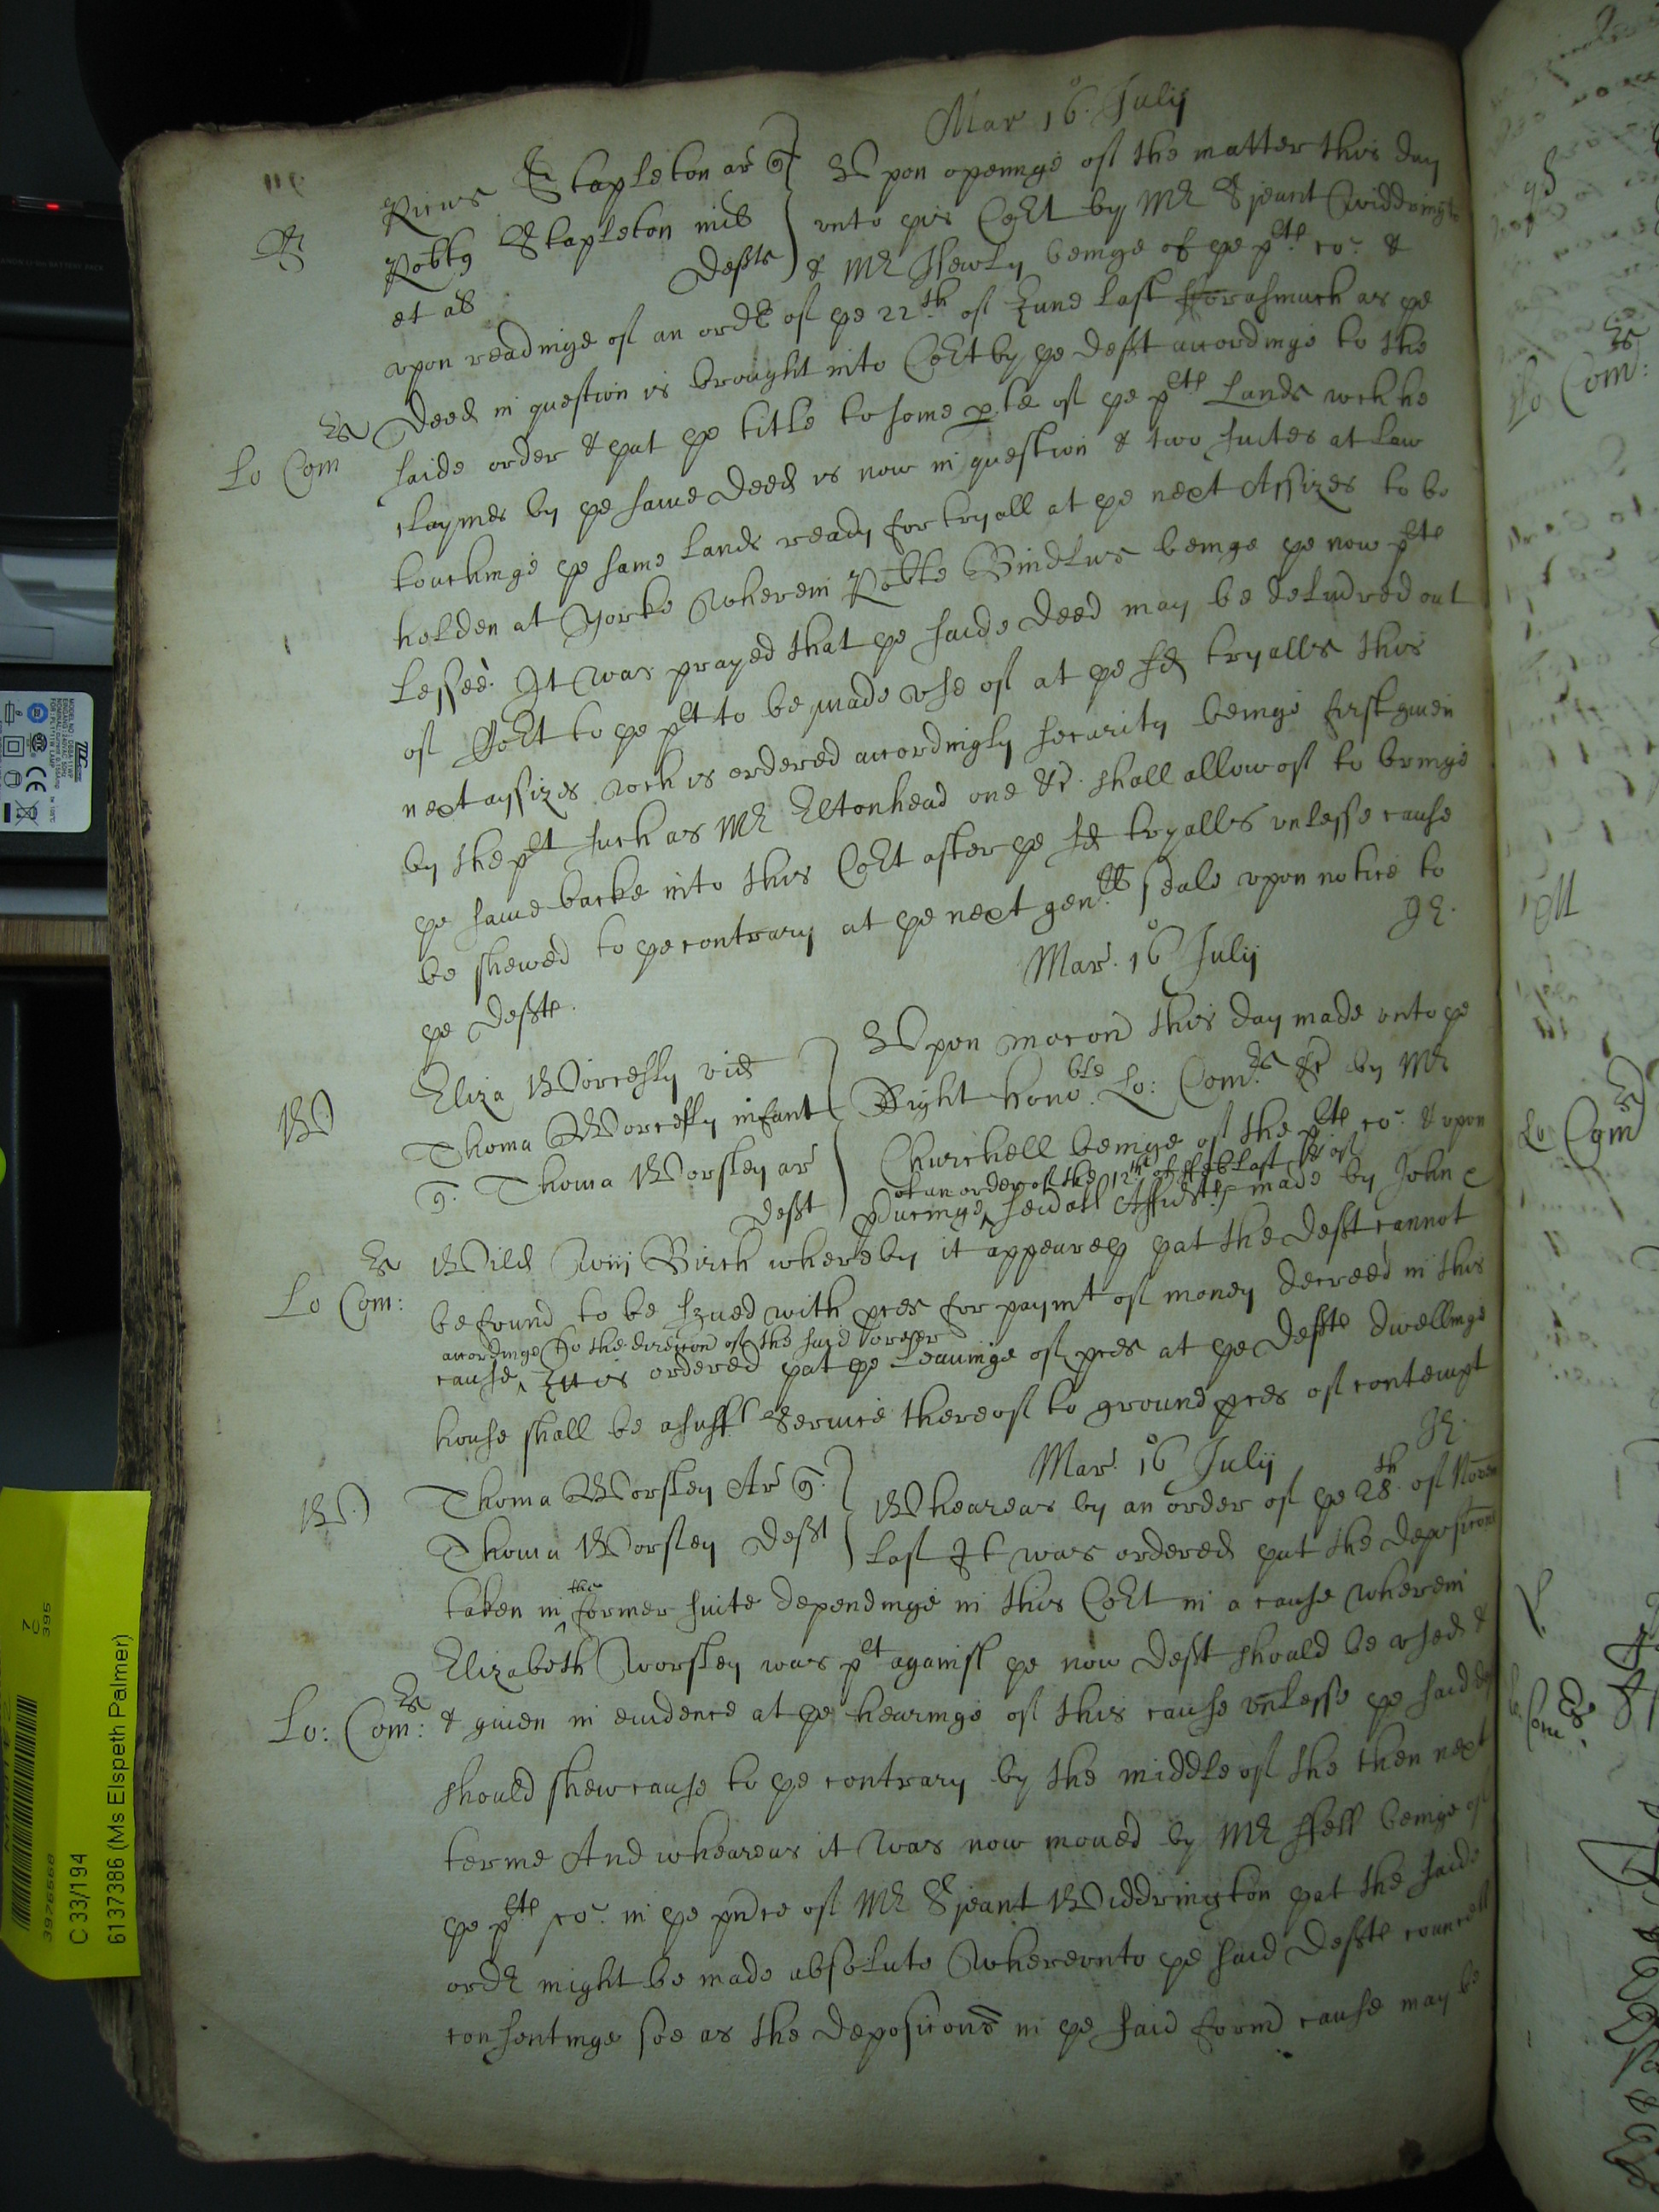 Mar 16° July
S
Ricus Stapleton ar q
Robtus Stapleton mil
et al
Defts
Upon openinge of the matter this day
unto this Cort by Mr Sjeant Widdringt
& Mr Hewly beinge of ye plts co. &
upon readinge of an ordr of ye 22th of June last Forasmuch as ye
Lo Comrs
Deed in question is brought into Cort by ye Deft accordinge to the
saide order & yat ye title to some pte of ye plts Lands wch he
claymes by ye same Deed is now in question & two suites at law
touchinge ye same Lands ready for tryall at ye next Assizes to be
holden at Yorke wherein Robte Bindlus beinge ye now plts
Lessee. It was prayed that ye saide Deed may be delivred out
of Cort to ye plt to be made use of at ye sd tryalls this
next assizes wch is ordered accordingly security beinge first given
by the plt such as Mr Eltonhead one &c. shall allow of to bringe
ye same backe into this Cort after ye sd tryalls unlesse cause
be shewed to ye contrary at ye next genll seale upon notice to
ye Defts.
JE.
Mar. 16° July
W
Eliza Worcesly vid
Thoma Worcesly infant
q. Thoma Worsley ar
Deft
Upon mocon this day made unto ye
Right honoble Lo: Comrs &c by Mr
Churchell beinge of the plts co. & upon
of an order of the 12th of Feb last & of
pducinge ^ sevall Affidts made by John
Lo Comrs:
Wild Wm Birch whereby it appeareth yat the Deft cannot
be found to be served with pces for paymt of money decreed in this
accordinge to the direccon of the said order
cause ^ It is ordered yat ye leavinge of pces at ye Defts Dwellinge
house shall be a sufft Service thereof to ground pces of contempt
JE.
Mar. 16° July
W.
Thoma Worsley Ar q.
Thoma Worsley Deft
Wheareas by an order of ye 28th of Novem
last It was ordered yat the depositons
the
taken in ^ former suite dependinge in this Cort in a cause wherein
Elizabeth Worsley was plt against ye now Deft should be used &
Lo: Comrs:
& given in evidence at ye hearinge of this cause unlesse ye said de
should shew cause to ye contrary by the middle of the then next
terme And wheareas it was now moved by Mr Fell beinge of
ye plts co. in ye pnce of Mr Sjeant Widdrington yat the saide
ordr might be made absolute Whereunto ye said Defts councell
consentinge soe as the Depositons in ye said former cause may be
C 33/194
6137386 (Ms Elspeth Palmer)
Lo Comrs:
Lo Comrs